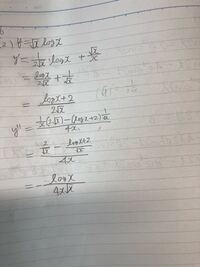 (2) y = √x log x
y' = 1/(2√x) · log x + √x/x
= log x/(2√x) + 1/√x
= (log x + 2)/(2√x)
y'' = (1/x (2√x) − (log x + 2) 1/√x)/(4x)
= (2/√x − (log x + 2)/√x)/(4x)
= − log x/(4x√x)